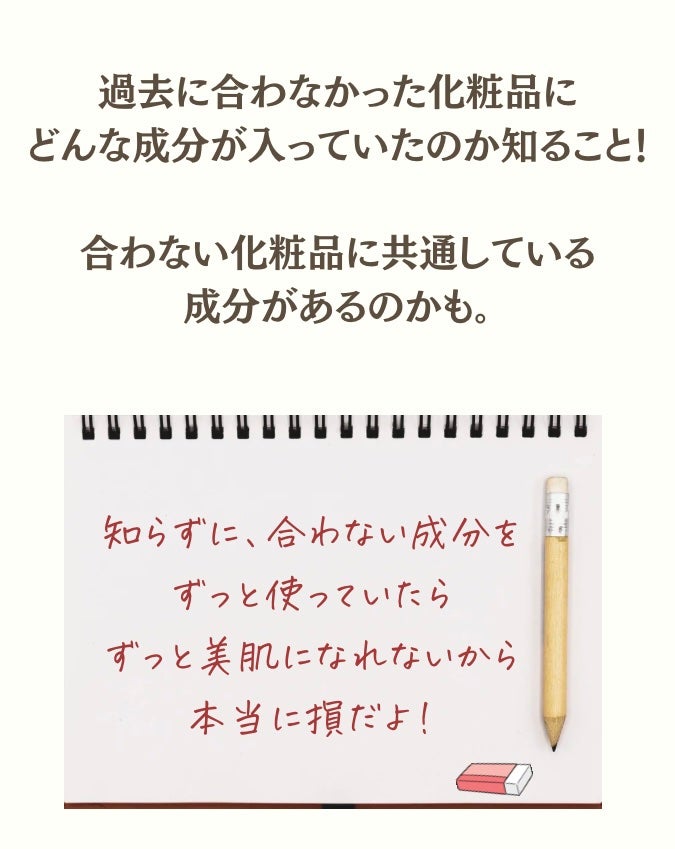 過去に合わなかった化粧品に
どんな成分が入っていたのか知ること!
合わない化粧品に共通している
成分があるのかも。
知らずに、合わない成分を
ずっと使っていたら
ずっと美肌になれないから
本当に損だよ!